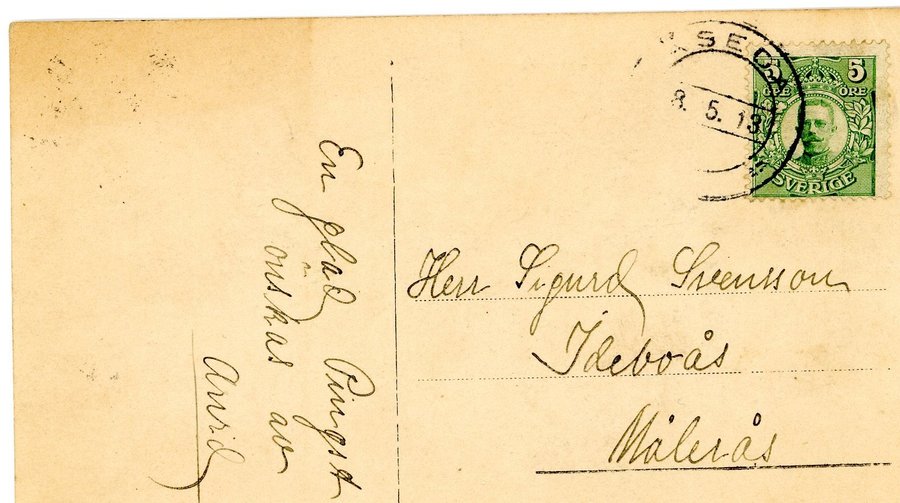 En glad Pingst
önskas av
ÅSEDA
8. 5. 13
5 5
ÖRE ÖRE
SVERIGE
Herr Sigurd Svensson
Ideboås
Målerås